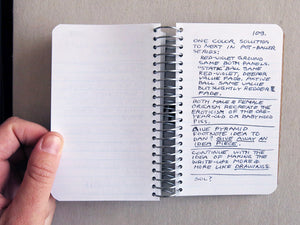 109.
ONE COLOR SOLUTION
TO NEXT IN POT-BALLER
SERIES:
RED-VIOLET GROUND
SAME BOTH PANELS.
"STATIC" BALL SAME
RED-VIOLET, DEEPER
VALUE FADE. ACTIVE
BALL SAME VALUE
BUT SLIGHTLY REDDER
FADE.
BOTH MALE & FEMALE
ORGASM RECREATE THE
EROTICISM OF THE ONE-
YEAR-OLD OR BABYHOOD
PICS.
GIVE PYRAMID
FOOTNOTE IDEA TO
DAN? GIVE AWAY AN
IDEA PIECE
CONTINUE WITH THE
IDEA OF MAKING THE
WRITE-UPS MORE &
MORE LIKE DRAWINGS.